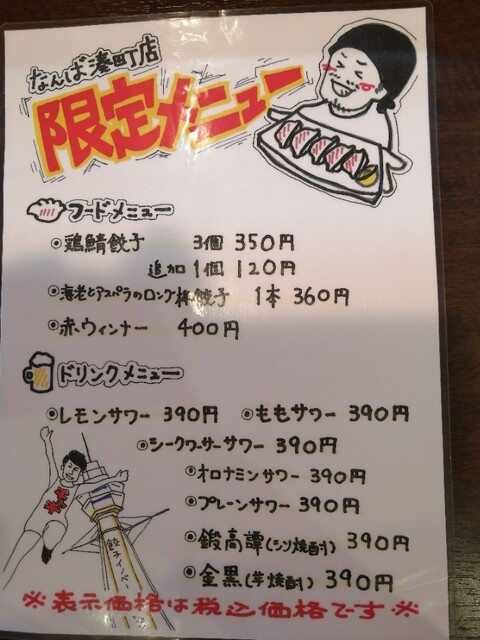 なんば湊町店
限定メニュー
フードメニュー
◎鶏鯖餃子 3個 350円
追加 1個 120円
◎海老とアスパラのロング棒餃子 1本 360円
◎赤ウィンナー 400円
ドリンクメニュー
◎レモンサワー 390円 ◎ももサワー 390円
◎シークワーサーサワー 390円
◎オロナミンサワー 390円
◎プレーンサワー 390円
◎鍛高譚(シソ焼酎) 390円
◎金黒(芋焼酎) 390円
※表示価格は税込価格です※